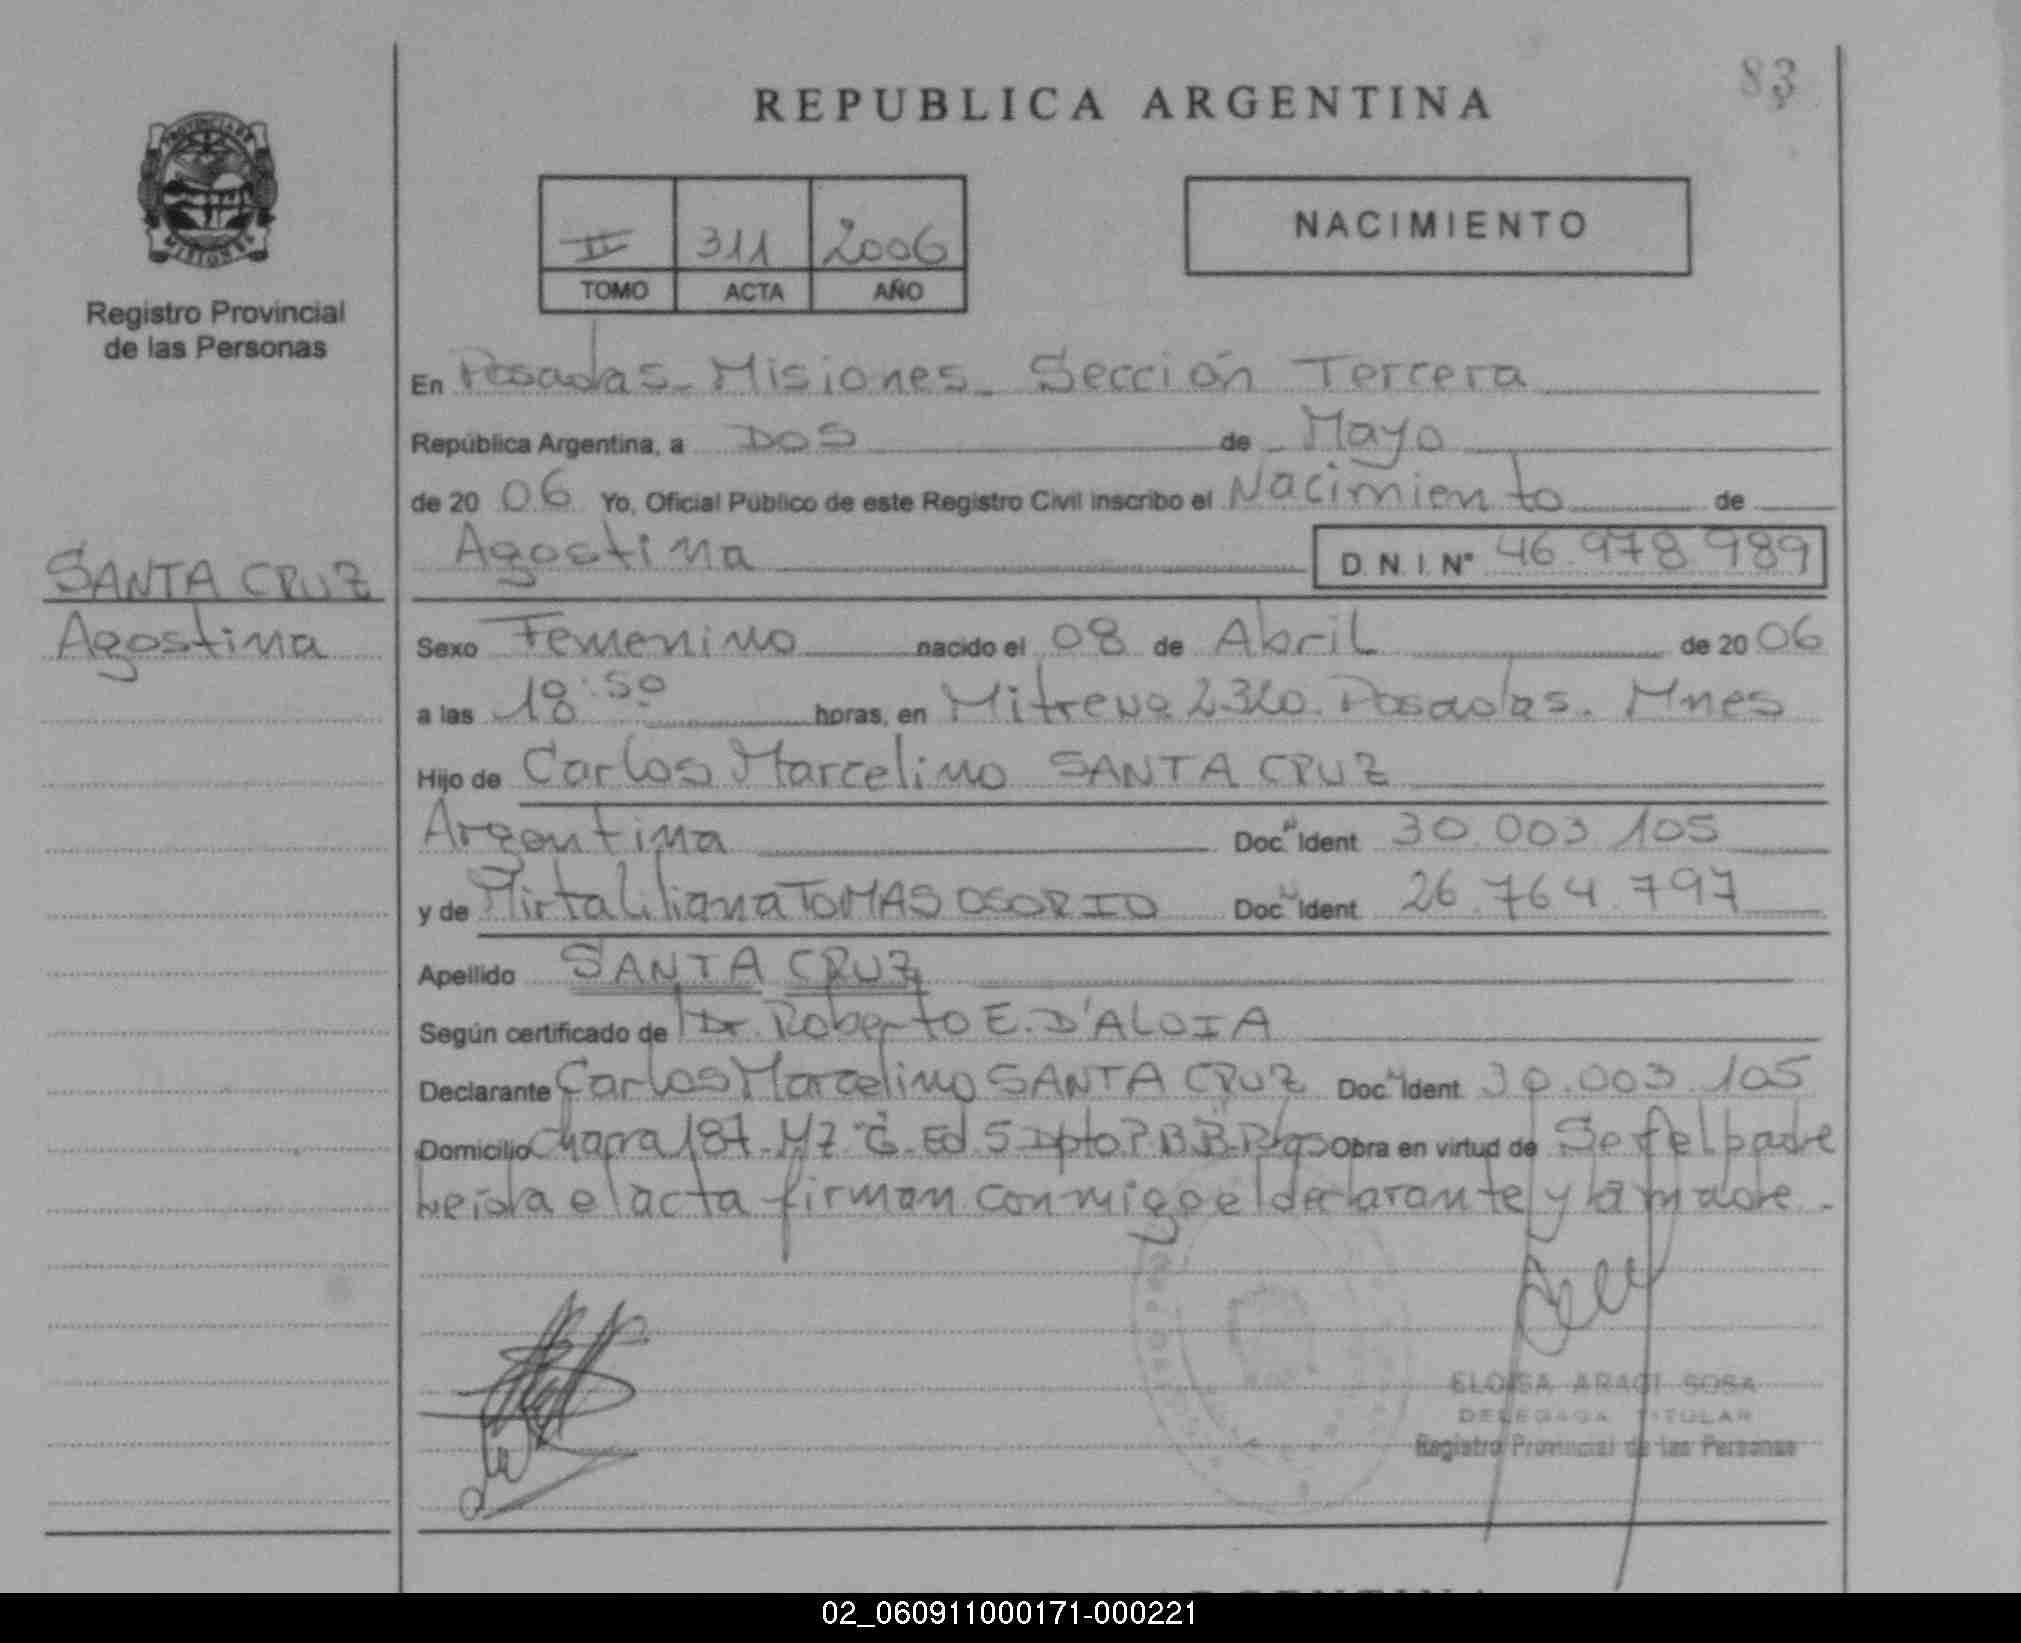 83
REPUBLICA ARGENTINA
PROVINCIA DE
MISIONES
Registro Provincial
de las Personas
II 311 2006
TOMO ACTA AÑO
NACIMIENTO
En Posadas - Misiones - Sección Tercera
República Argentina, a DOS de Mayo
de 20 06 Yo, Oficial Público de este Registro Civil inscribo el Nacimiento de
Agostina D.N.I. Nº 46.978.989
SANTA CRUZ
Agostina
Sexo Femenino nacido el 08 de Abril de 20 06
a las 18:50 horas, en 2320. Posadas. Mnes
Hijo de Carlos Marcelino SANTA CRUZ
Argentina Doc. Ident. 30.003.105
y de Mirta Liliana TOMAS OSORIO Doc. Ident. 26.764.797
Apellido SANTA CRUZ
Según certificado de Dr. Roberto E. D'ALOIA
Declarante Carlos Marcelino SANTA CRUZ Doc. Ident. 30.003.105
Domicilio Chacra 187-Mz "C"-Ed 5-Dpto P.B "B"- Obra en virtud de Ser el padre
Leída el acta firman conmigo el declarante y la madre.-
ELOISA ARAGI SOSA
DELEGADA TITULAR
Registro Provincial de las Personas
02_060911000171-000221